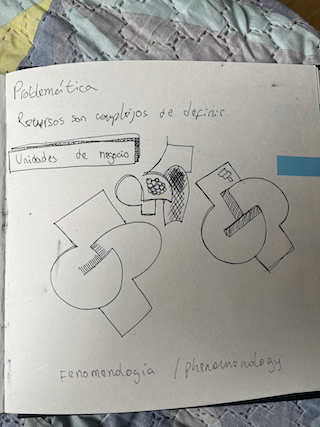 Problemática
Recursos son complejos de definir
Unidades de negocio
Fenomenología / phenomenology